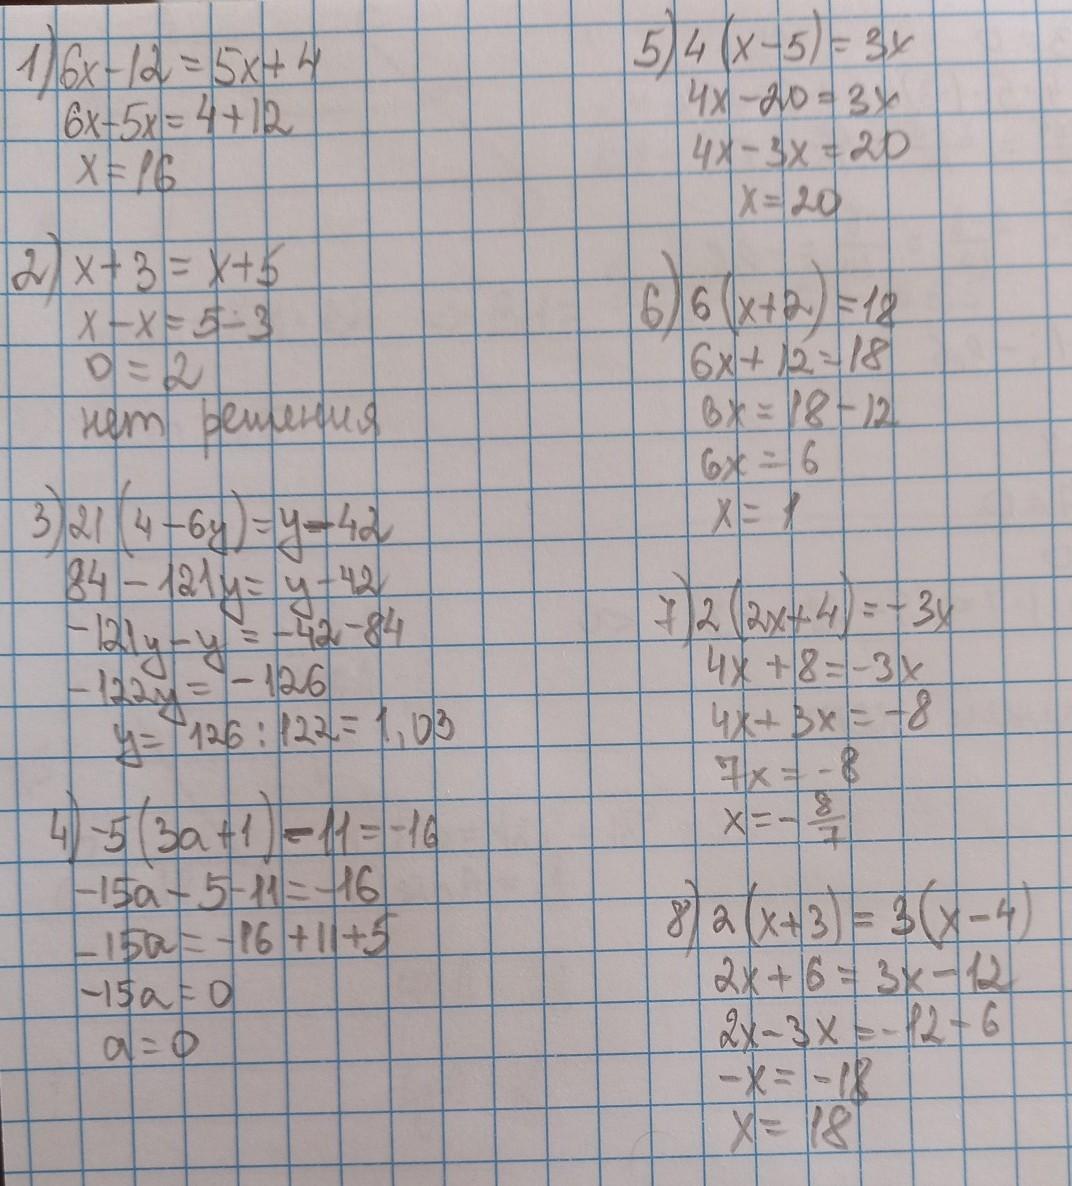 1) 6x-12=5x+4
6x-5x=4+12
x=16
2) x+3=x+5
x-x=5-3
0=2
нет решения
3) 21(4-6y)=y-42
84-121y=y-42
-121y-y=-42-84
-122y=-126
y= 126:122=1,03
4) -5(3a+1)-11=-16
-15a-5-11=-16
-15a=-16+11+5
-15a=0
a=0
5) 4(x-5)=3x
4x-20=3x
4x-3x=20
x=20
6) 6(x+2)=18
6x+12=18
6x=18-12
6x=6
x=1
7) 2(2x+4)=-3x
4x+8=-3x
4x+3x=-8
7x=-8
x=-8/7
8) 2(x+3)=3(x-4)
2x+6=3x-12
2x-3x=-12-6
-x=-18
x=18